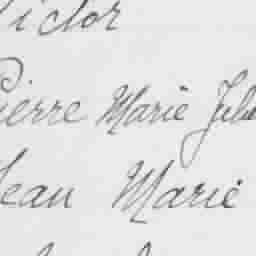 Victor
Pierre Marie
Jean Marie